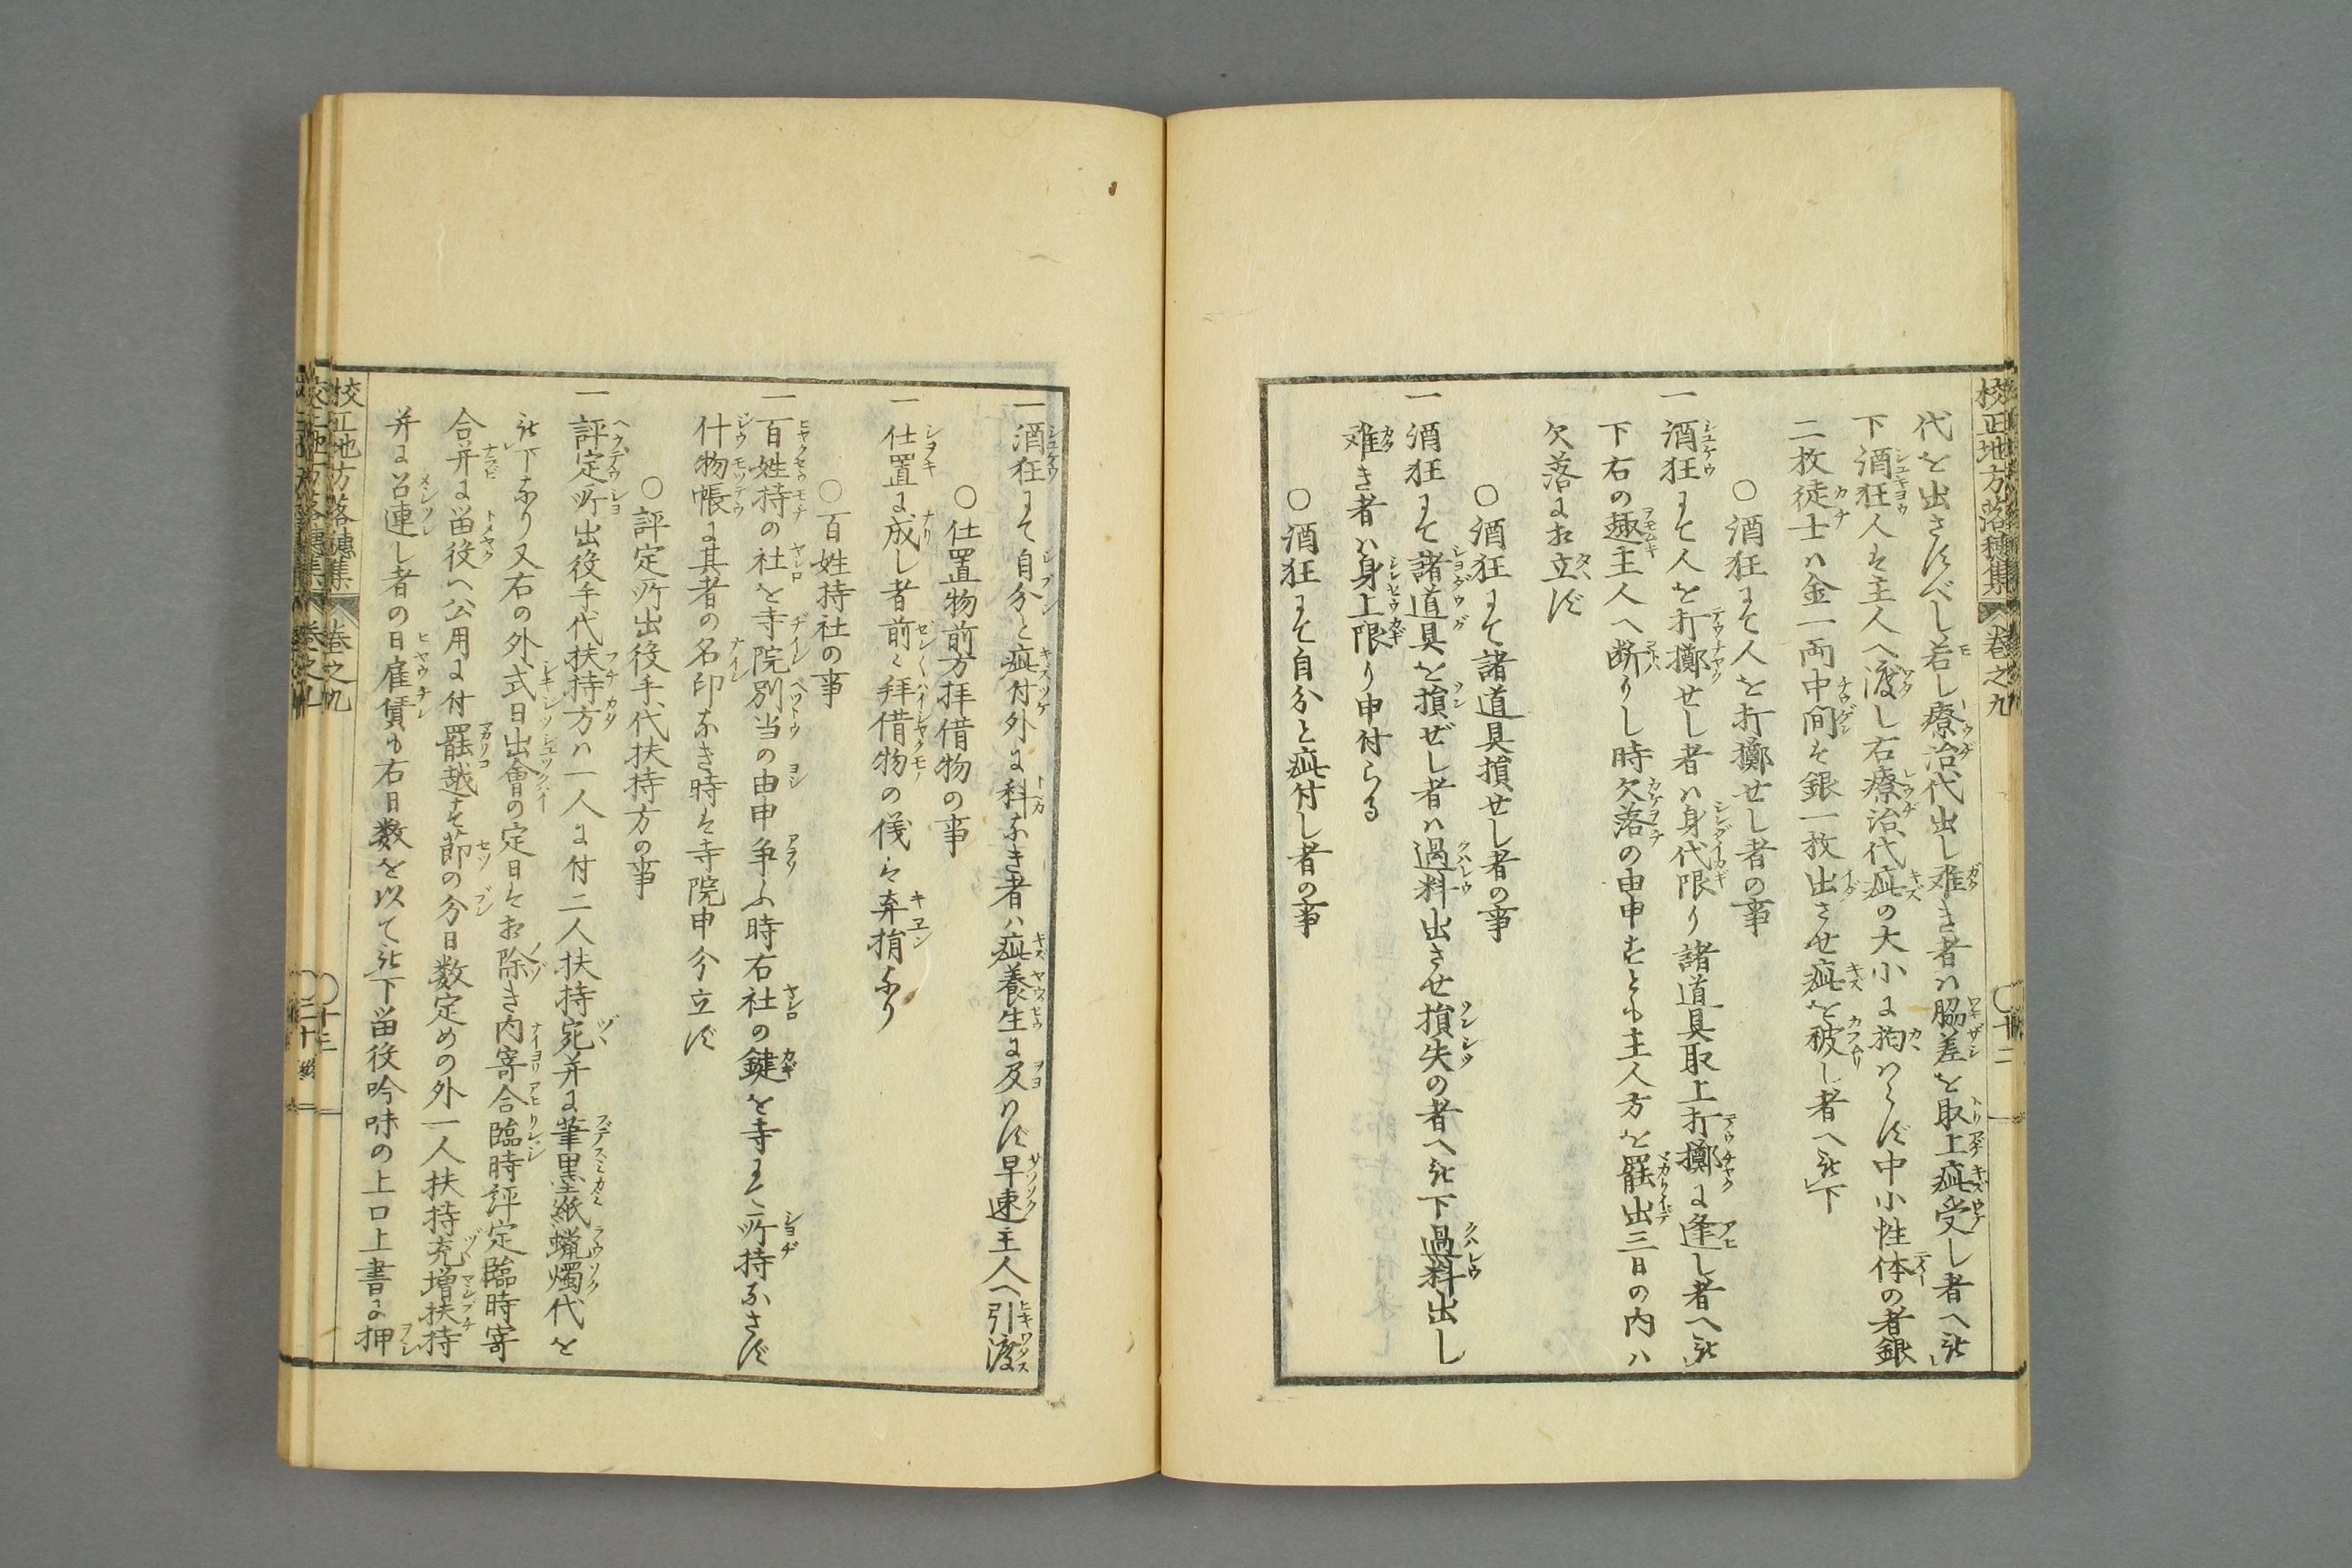 校正地方落穂集 巻之九 〇十二
代を出さすべし若し療治代出し难き者ハ脇差を取上疵受し者へ被
下酒狂人ハ主人へ渡し右療治代疵の大小に拘ハらず中小性体の者銀
二枚徒士ハ金一両中間ハ銀一枚出させ疵を被し者へ被下
〇酒狂にて人を打擲せし者の事
一酒狂にて人を打擲せし者ハ身代限り諸道具取上打擲に逢し者へ被
下右の趣主人へ断りし時欠落の由申すとも主人方を罷出三日の内ハ
欠落に相立ず
〇酒狂にて諸道具損せし者の事
一酒狂にて諸道具を損ぜし者ハ過料出させ損失の者へ被下過料出し
难き者ハ身上限り申付らる
〇酒狂にて自分と疵付し者の事
一酒狂にて自分と疵付外に科なき者ハ疵養生に及ハず早速主人へ引渡
〇仕置物前方拝借物の事
一仕置に成し者前〻拝借物の儀ハ弃捐なり
〇百姓持社の事
一百姓持の社を寺院別当の由申争ふ時右社の鍵を寺にて所持なさず
什物帳に其者の名印なき時ハ寺院申分立ず
〇評定所出役手代扶持方の事
一評定所出役手代扶持方ハ一人に付二人扶持宛并に筆墨紙蝋燭代を
被下なり又右の外式日出會の定日ハ相除き内寄合臨時評定臨時寄
合并に畄役へ公用に付罷越す節の分日数定めの外一人扶持充増扶持
并に召連し者の日雇賃も右日数を以て被下畄役吟味の上口上書に押
校正地方落穂集 巻之九 〇十三